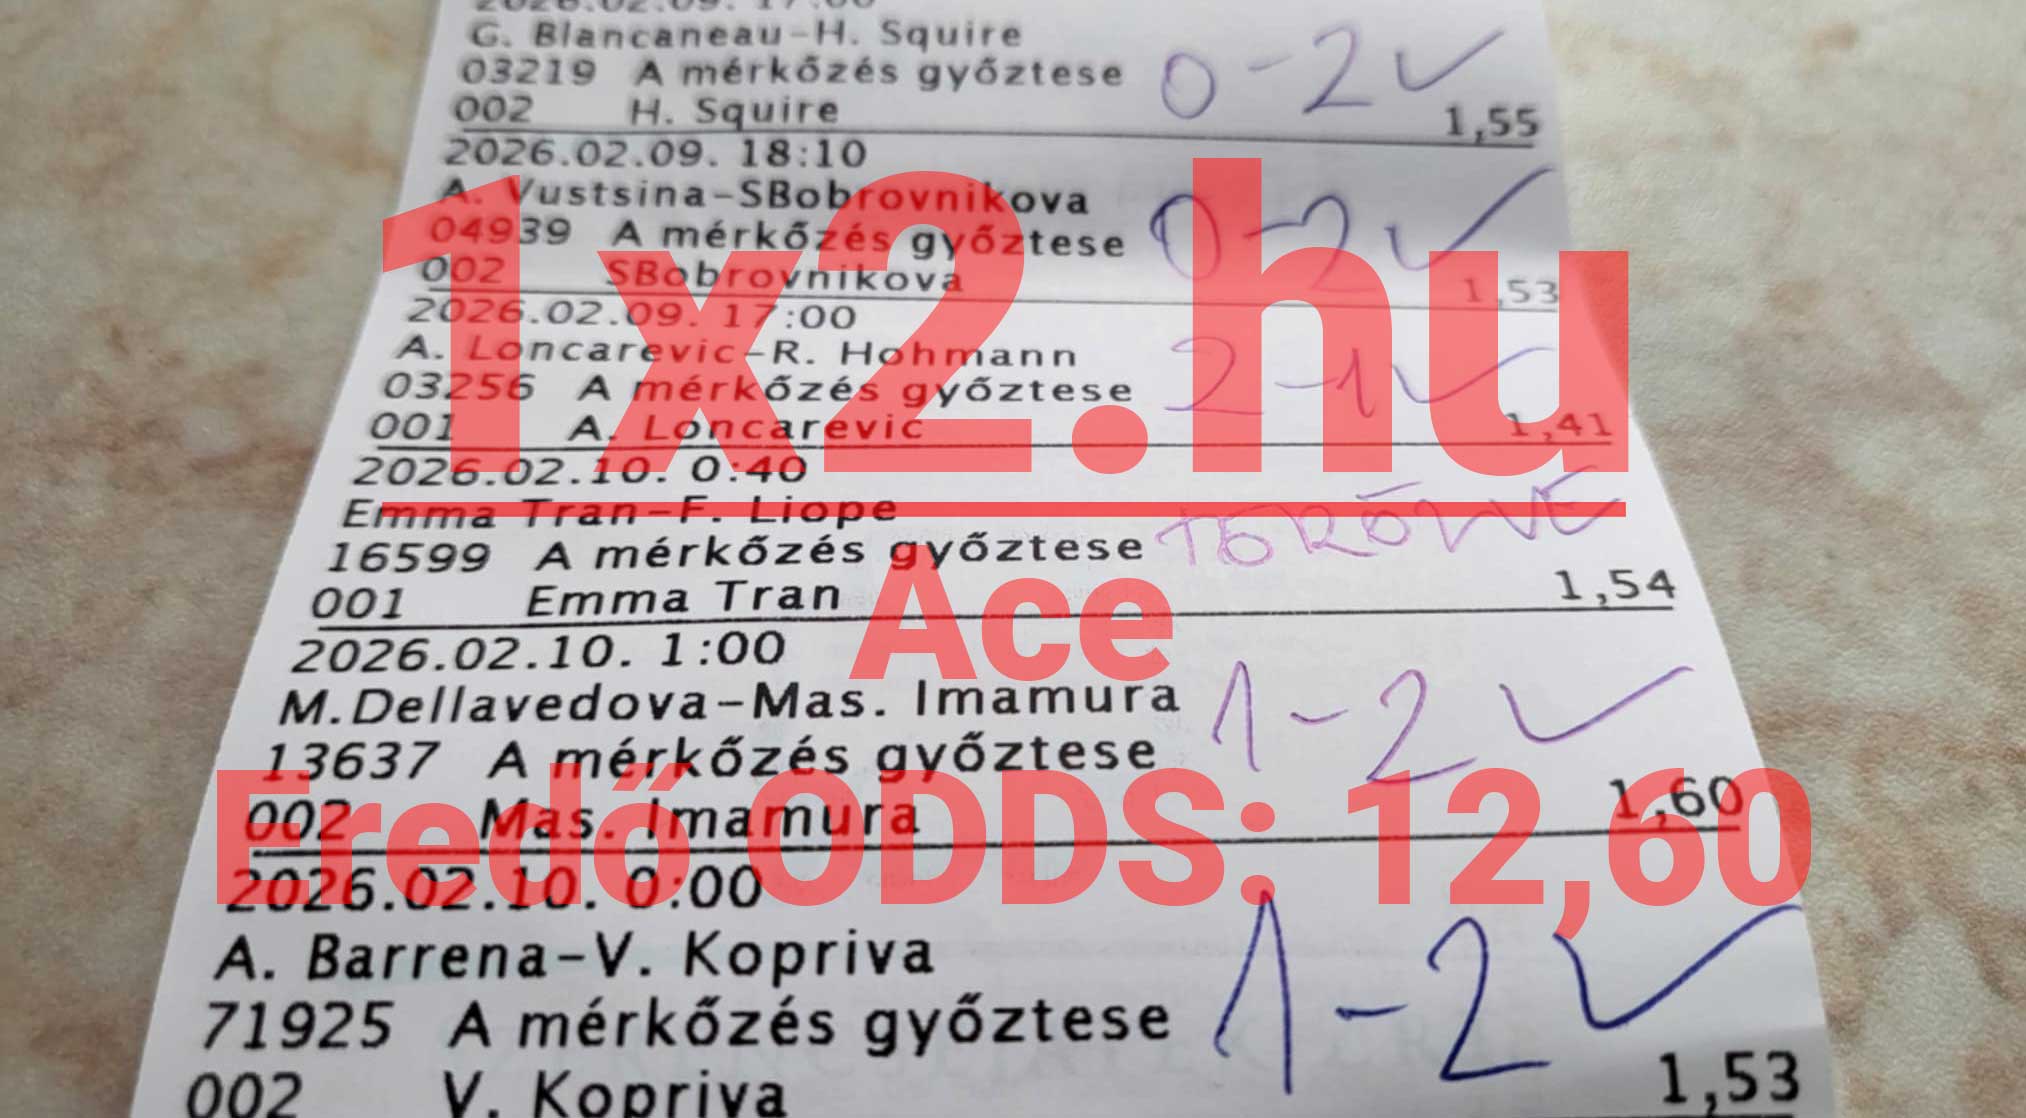 2026.02.09. 17:00
G. Blancaneau-H. Squire
03219 A mérkőzés győztese 0-2 ✓
002 H. Squire 1,55
2026.02.09. 18:10
A. Vustsina-SBobrovnikova
04939 A mérkőzés győztese 0-2 ✓
002 SBobrovnikova 1,53
2026.02.09. 17:00
A. Loncarevic-R. Hohmann
03256 A mérkőzés győztese 2-1 ✓
001 A. Loncarevic 1,41
2026.02.10. 0:40
Emma Tran-F. Liope
16599 A mérkőzés győztese TÖRÖLVE
001 Emma Tran 1,54
2026.02.10. 1:00
M.Dellavedova-Mas. Imamura
13637 A mérkőzés győztese 1-2 ✓
002 Mas. Imamura 1,60
2026.02.10. 0:00
A. Barrena-V. Kopriva
71925 A mérkőzés győztese 1-2 ✓
002 V. Kopriva 1,53
1x2.hu
Ace
Eredő ODDS: 12,60